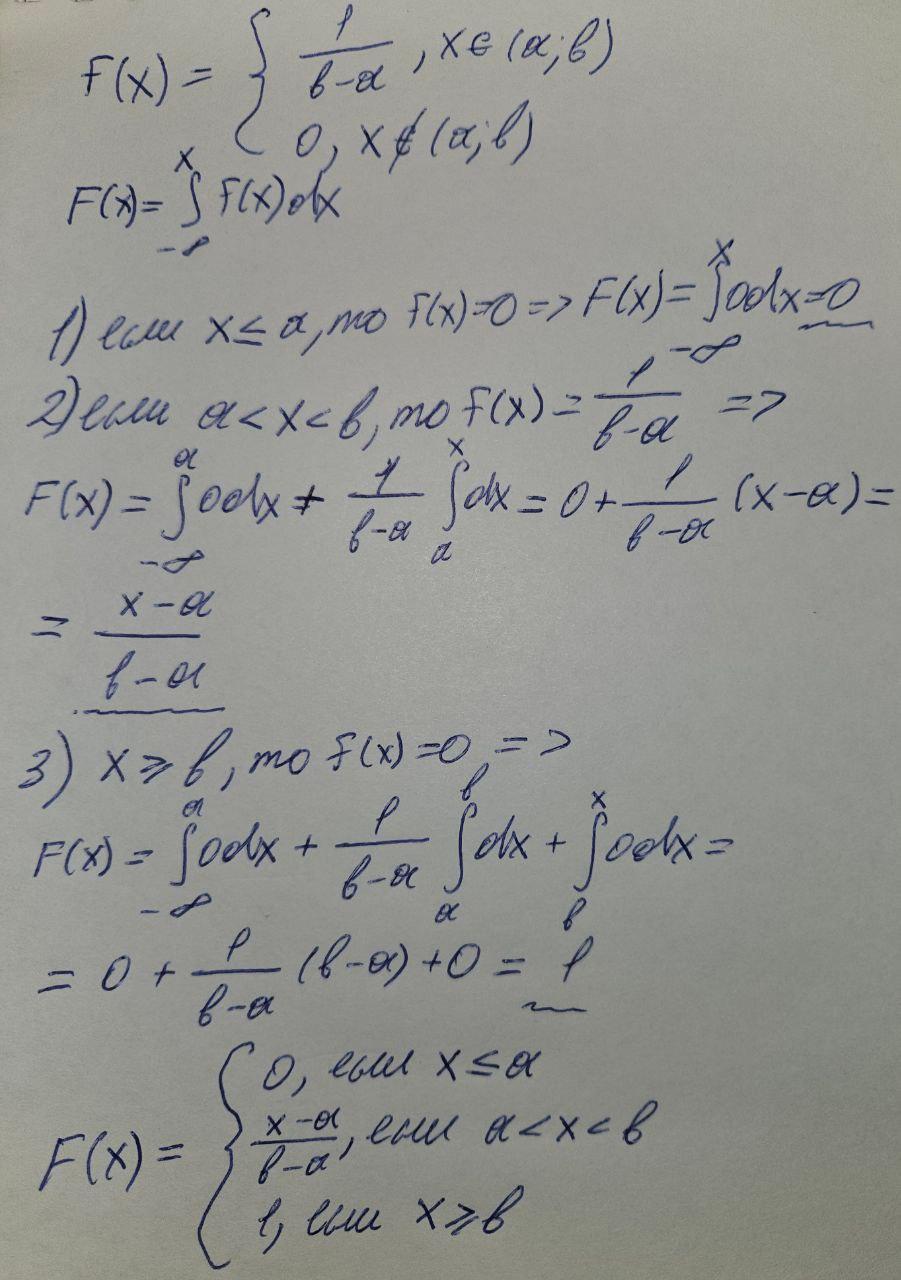 f(x) = { 1/(в-a), x∈(a;в)
0, x∉(a;в)
F(x) = ∫_{-∞}^{x} f(x)dx
1) если x ≤ a, то f(x)=0 => F(x) = ∫_{-∞}^{x} 0dx = 0
2) если a < x < в, то f(x) = 1/(в-a) =>
F(x) = ∫_{-∞}^{a} 0dx + 1/(в-a) ∫_{a}^{x} dx = 0 + 1/(в-a) (x-a) =
= (x-a)/(в-a)
3) x ≥ в, то f(x) = 0 =>
F(x) = ∫_{-∞}^{a} 0dx + 1/(в-a) ∫_{a}^{в} dx + ∫_{в}^{x} 0dx =
= 0 + 1/(в-a) (в-a) + 0 = 1
F(x) = { 0, если x ≤ a
(x-a)/(в-a), если a < x < в
1, если x ≥ в